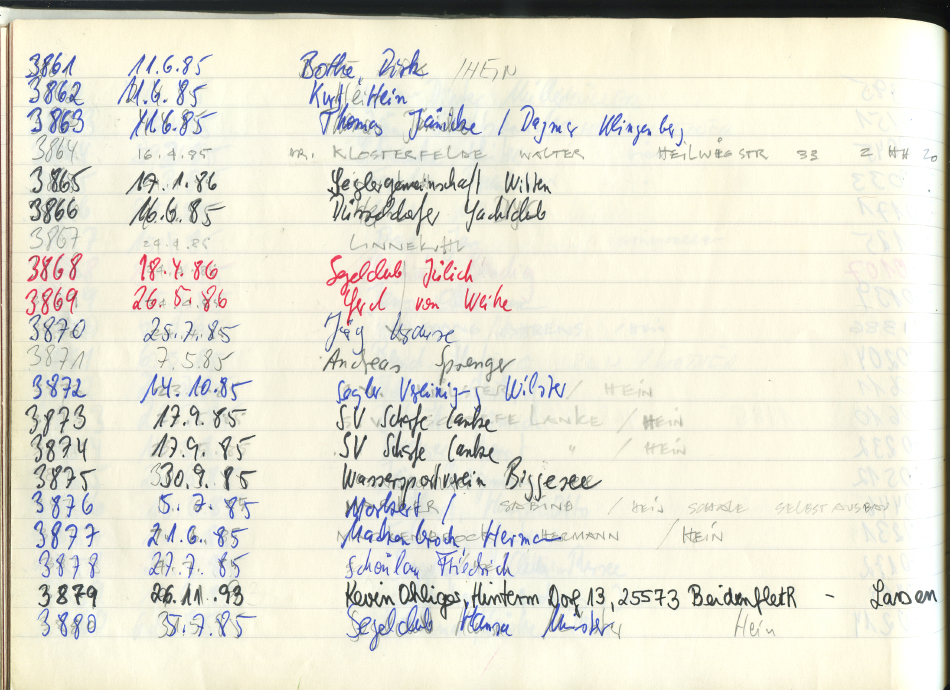 3861 11.6.85 Bothe, Dirk /HEIN
3862 11.6.85 Kurt Hein
3863 11.6.85 Thomas / Dagmar Klingenberg
3864 16.4.85 KLOSTERFELDE WALTER HEILWIGSTR 33 2 HH 20
3865 17.1.86 Seglergemeinschaft Witten
3866 16.6.85 Düsseldorfer Yachtclub
3867
3868 18.4.86 Segelclub Jülich
3869 26.5.86 Gerd von Weihe
3870 25.7.85
3871 7.5.85 Andreas Sprenger
3872 14.10.85 Wilster / HEIN
3873 17.9.85 SV Scharfe Lanke / HEIN
3874 17.9.85 SV Scharfe Lanke " / HEIN
3875 30.9.85 Wassersportverein Biggesee
3876 5.7.85 / SABINE / HEIN SCHALE SELBSTAUSBAU
3877 21.6.85 HERMANN / HEIN
3878 27.7.85 Friedrich
3879 26.11.93 Kevin Ohligs, Hinterm Dorf 13, 25573 Beidenfleth - Larsen
3880 5.7.85 Segelclub Hansa Münster Hein